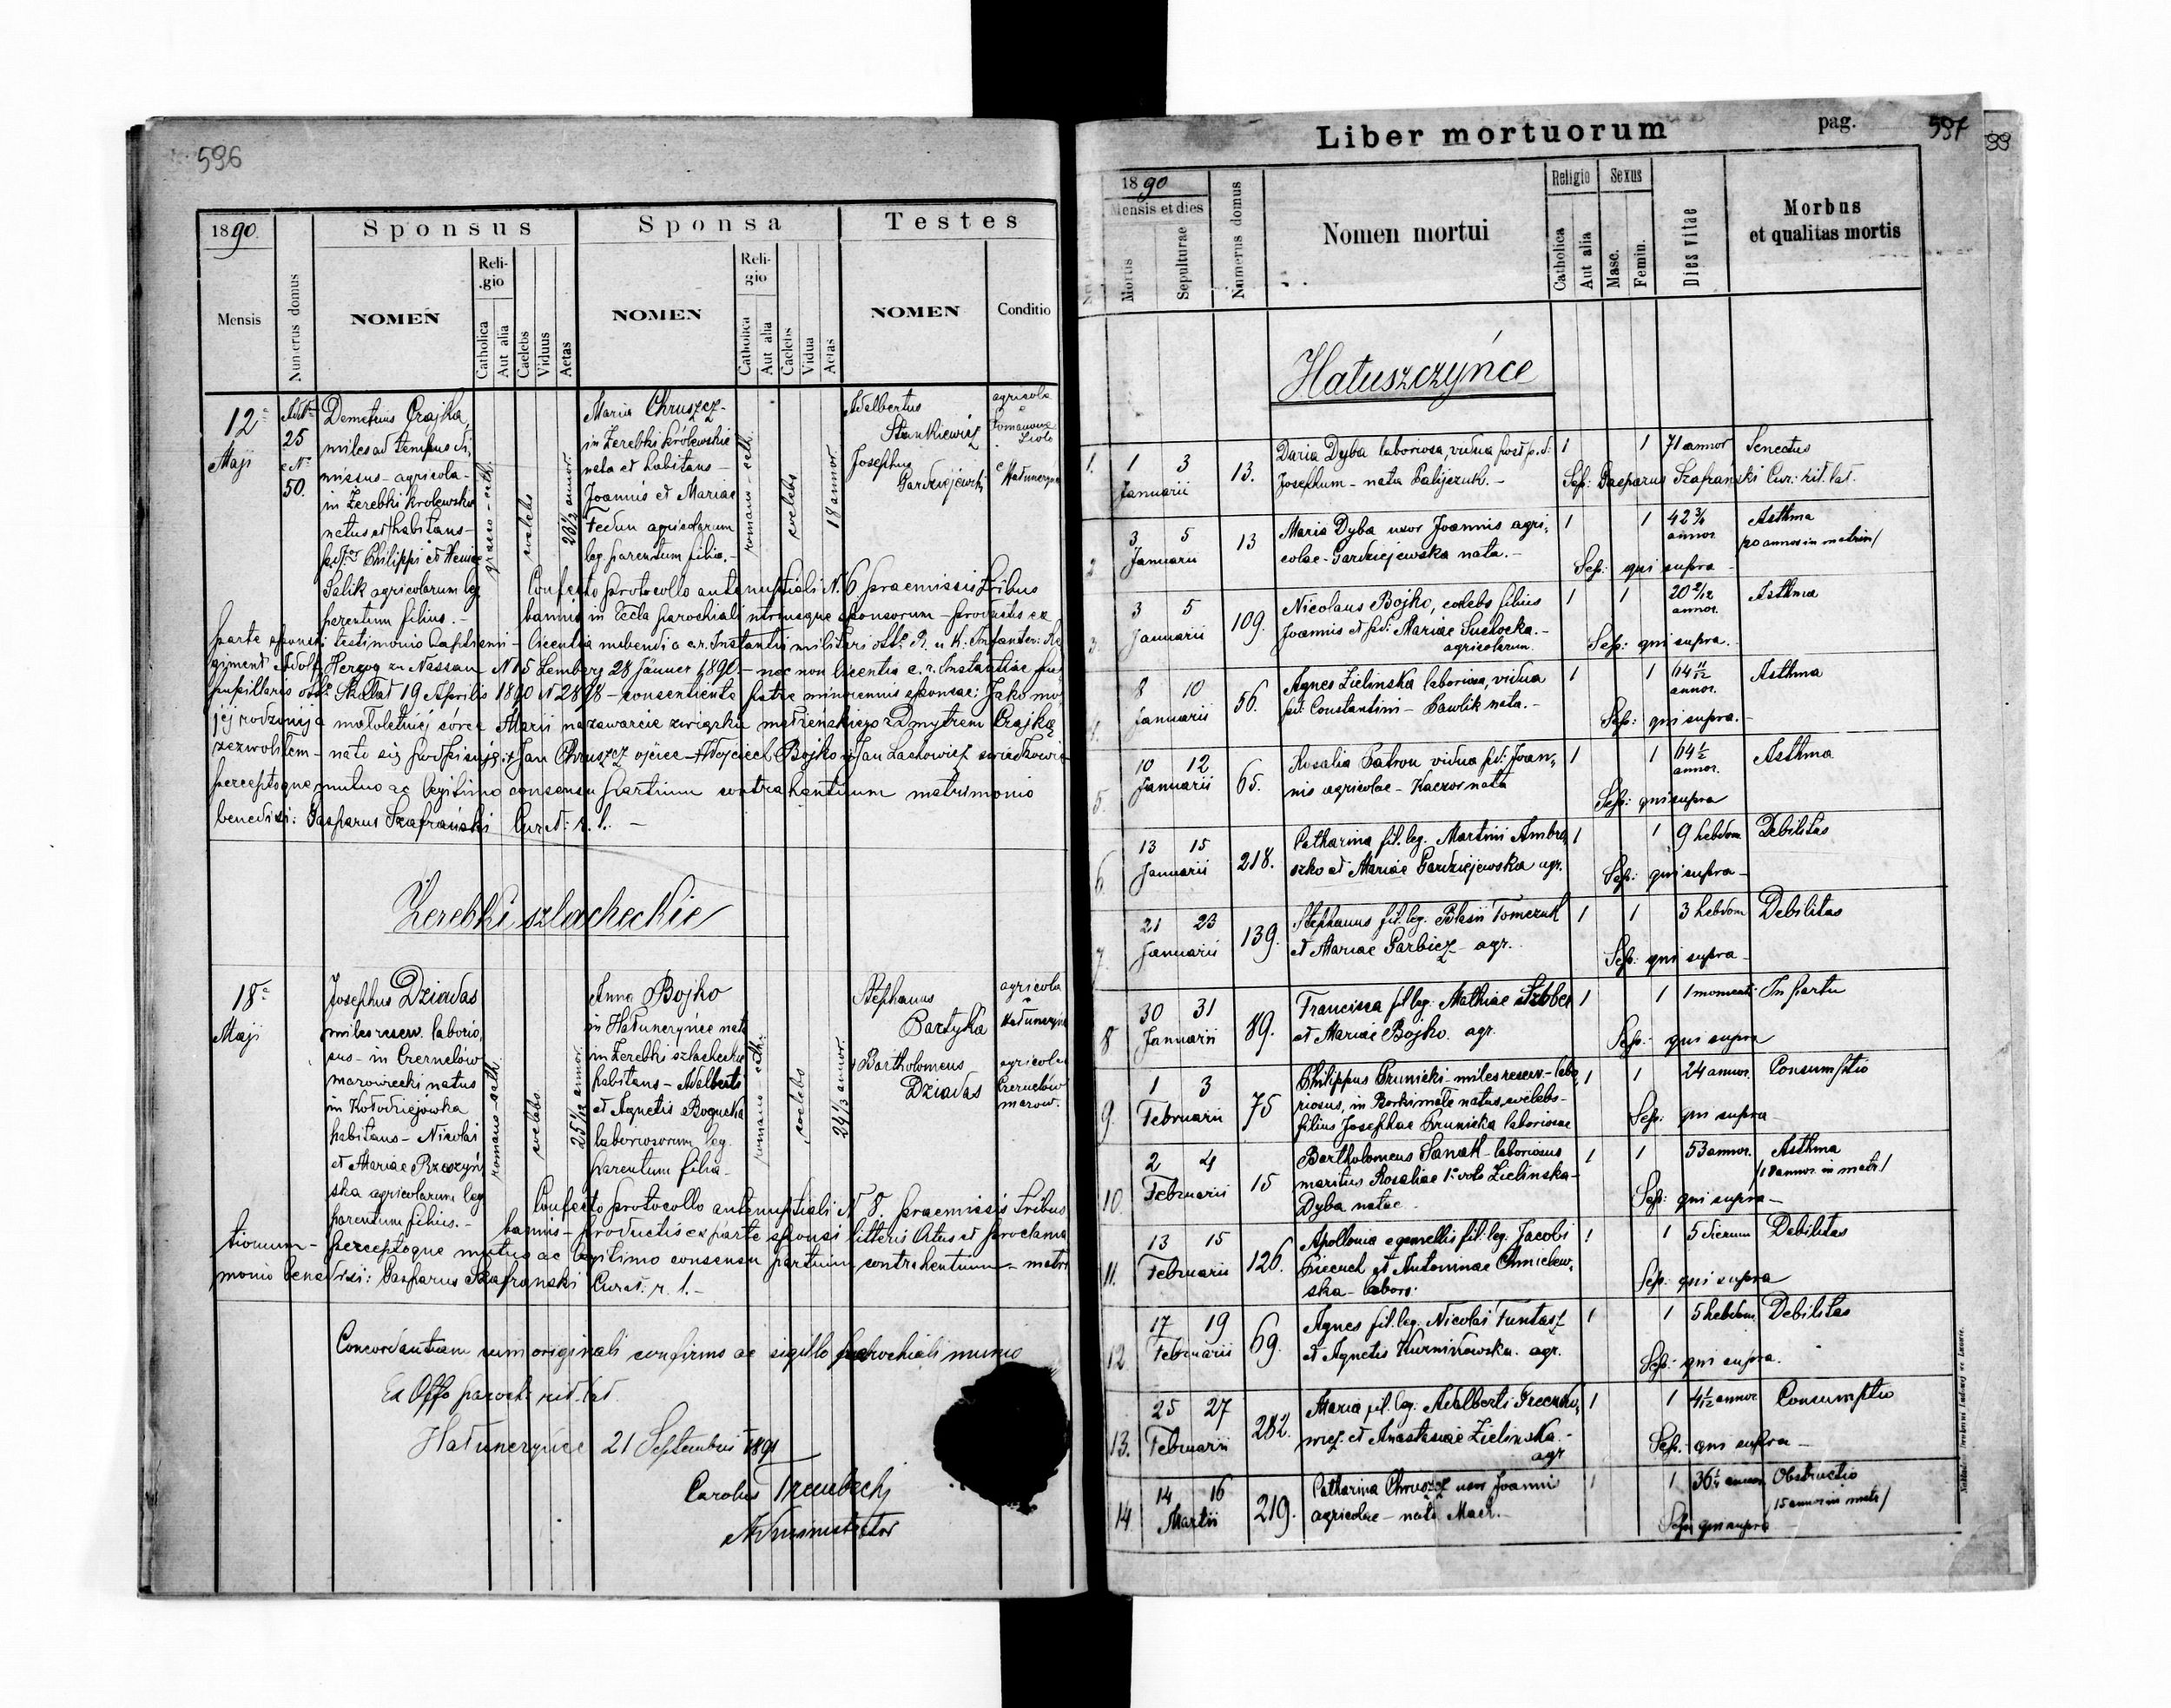 596
1890.
Sponsus
Sponsa
Testes
Mensis
Numerus domus
NOMEN
Reli-
gio
Catholica
Aut alia
Caelebs
Viduus
Aetas
NOMEN
Reli-
gio
Catholica
Aut alia
Caelebs
Vidua
Aetas
NOMEN
Conditio
12a
Maji
25
e No
50.
Demetrius Czajka,
miles ad tempus di,
missus - agricola -
in Zerebki krolewskie
natus et habitans -
Philippi et
Salik agricolarum leg.
parentum filius. -
graeco - cath.
coelebs
23½ annor.
Maria Chruszcz -
in Zerebki królewskie
nata et habitans -
Joannis et Mariae
Fedun agricolarum
leg. parentum filia. -
romano - cath.
coelebs
18 annor.
Adalbertus
Stankiewicz
Josephus
Gardziejewski
agricola
e
Confecto protocollo antenuptiali N. 6 praemissis tribus
bannis in Eccla parochiali utriusque sponsorum - productis ex
parte sponsi testimonio baptismi - licentia nubendi a c.r. Instantia militari K. u K. Infanter: Re
giment Adolf Herzog zu Nassau N 15 Lemberg 28 Jänner 1890. - nec non licentia c. r. Instantiae
pupillaris Skalat 19 Aprilis 1890 N 2898 - consentiente patre minorennis sponsae: Jako
jej rodzonej małoletniej córce Maryi na zawarcie związku małżeńskiego z Dmytrem Czajką
zezwoliłem - na to się podpisuję: + Jan Chruszcz ojciec + Wojciech Bojko + Jan Lachowicz swiadkowie
perceptoque mutuo ac legitimo consensu partium contrahentium matrimonio
benedixi: Gasparus Szafrański Curat: r. l. -
Zerebki szlacheckie
18a
Maji
Josephus Dziadas
miles reserv. laborio,
sus - in Czernelów
mazowiecki natus
in Kołodziejówka
habitans - Nicolai
et Mariae Rzeszyń
ska agricolarum leg
parentum filius. -
romano - cath.
coelebs
Anna Bojko
in Hałuszczyńce nata
in Zerebki szlacheckie
habitans - Adalberti
et Agnetis Bogucka
laboriosorum leg.
parentum filia -
romano - cath.
coelebs
24⅓ annor.
Stephanus
Bartyka
Bartholomeus
Dziadas
agricola
e
Hałuszczyńce
agricola
Czernelów
mazow.
Confecto protocollo antenuptiali N 8. praemissis tribus
bannis - productis ex parte sponsi litteris Ortus et proclama
tionum - perceptoque mutuo ac legitimo consensu partium contrahentium - matri
monio benedixi: Gasparus Szafranski Curat: r. l. -
Concordantiam cum originali confirmo ac sigillo parochiali munio
Ex Offo paroch. rit. lat.
Hałuszczyńce 21 Septembris 1891
Carolus Trembecki
Administrator
Liber mortuorum
pag.
597
99
1890
Mensis et dies
Mortis
Sepulturae
Numerus domus
Nomen mortui
Religio
Catholica
Aut alia
Sexus
Masc.
Femin.
Dies vitae
Morbus
et qualitas mortis
Hałuszczyńce
1. 1 3 Januarii 13. Daria Dyba laboriosa, vidua post p.d: 1 1 71 annor Senectus
Josephum - nata Palijczuk. - Sep: Gasparus Szafranski Cur: rit. lat.
2 3 5 Januarii 13 Maria Dyba uxor Joannis agri, 1 1 42 annor Asthma
colae - Gardziejewska nata. - /20 annos in matrim/
Sep: qui supra -
3 3 5 Januarii 109. Nicolaus Bojko, coelebs filius 1 1 20 2/12 annor. Asthma
Joannis et pd: Mariae Suchocka. -
agricolarum. Sep: qui supra.
4. 8 10 Januarii 56. Agnes Zielinska laboriosa, vidua 1 1 64 11/12 annor. Asthma
pd: Constantini - Pawlik nata. - Sep: qui supra. -
5. 10 12 Januarii 65. Rosalia Patron vidua pd: Joan, 1 1 64½ annor. Asthma
nis agricolae - Kaczor nata Sep: qui supra
6. 13 15 Januarii 218. Catharina fil. leg. Martini Ambro 1 1 9 hebdom Debilitas
szko et Mariae Gardziejewska agr. Sep: qui supra -
7. 21 23 Januarii 139. Stephanus fil. leg. Blasii Tomczuk 1 1 3 hebdom Debilitas
et Mariae Garbicz - agr. Sep: qui supra -
8 30 31 Januarii 89. Francisca fil leg. Mathiae 1 1 1 momenti In partu
et Mariae Bojko. agr. Sep: - qui supra
9. 1 3 Februarii 75 Philippus Prunicki - miles reserv. - labo, 1 1 24 annor. Consumptio
riosus, in natus, coelebs -
filius Josephae Prunicka laboriosae Sep: qui supra -
10. 2 4 Februarii 15 Bartholomeus Sanak - laboriosus 1 1 53 annor. Asthma
maritus Rosaliae 1o voto Zielinska - /18 annor. in matr./
Dyba natae. Sep: qui supra -
11. 13 15 Februarii 126. Apollonia e gemellis fil: leg. Jacobi 1 1 5 dierum Debilitas
et Antoninae Chmielew,
ska - labor: Sep: qui supra
12 17 19 Februarii 69. Agnes fil. leg. Nicolai Funtasz 1 1 5 hebdom Debilitas
et Agnetis Kurnikowska. agr. Sep: - qui supra.
13. 25 27 Februarii 282. Maria fil. leg. Adalberti 1 1 4 1/12 annor Consumptio
et Anastasiae Zielinska. -
agr Sep. - qui supra -
14 14 16 Martii 219. Catharina Chruszcz uxor Joannis 1 1 36 annor Obstructio
agricolae - nata Mach. - /15 annos in matr/
Sep: qui supra